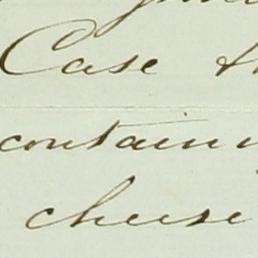 Case
contain
cheese